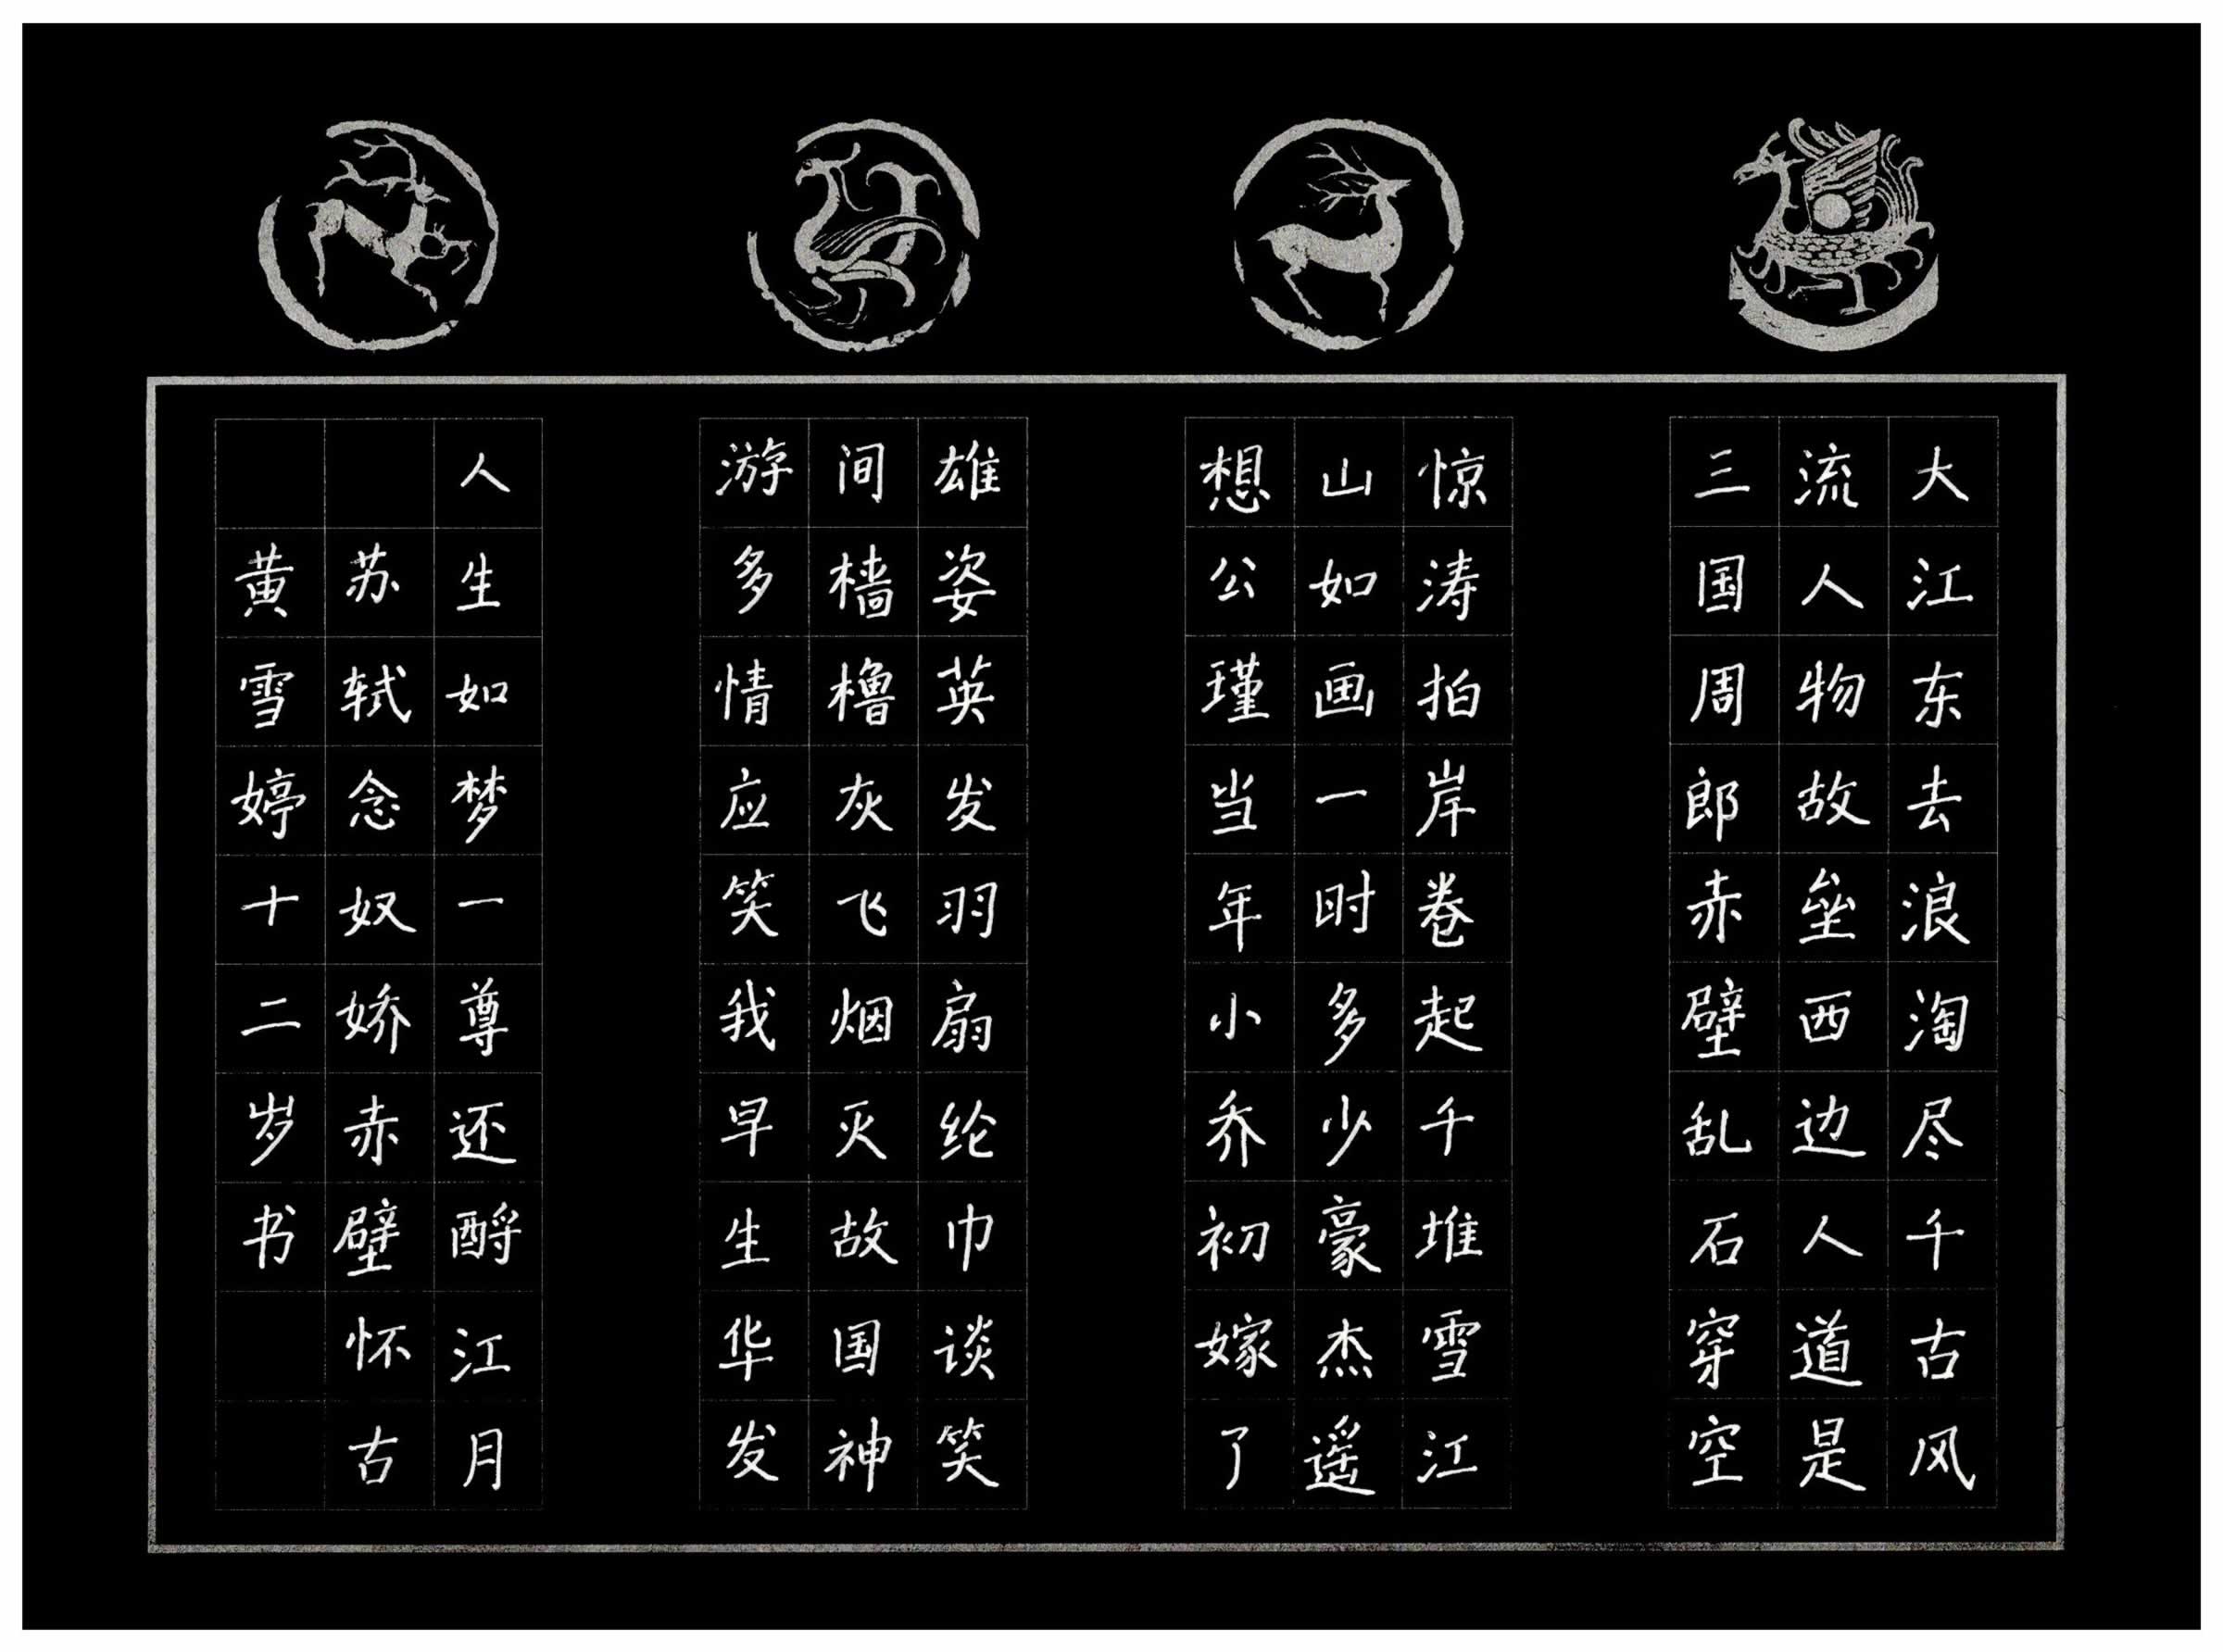 大江东去浪淘尽千古风
流人物故垒西边人道是
三国周郎赤壁乱石穿空
惊涛拍岸卷起千堆雪江
山如画一时多少豪杰遥
想公瑾当年小乔初嫁了
雄姿英发羽扇纶巾谈笑
间樯橹灰飞烟灭故国神
游多情应笑我早生华发
人生如梦一尊还酹江月
苏轼念奴娇赤壁怀古
黄雪婷十二岁书